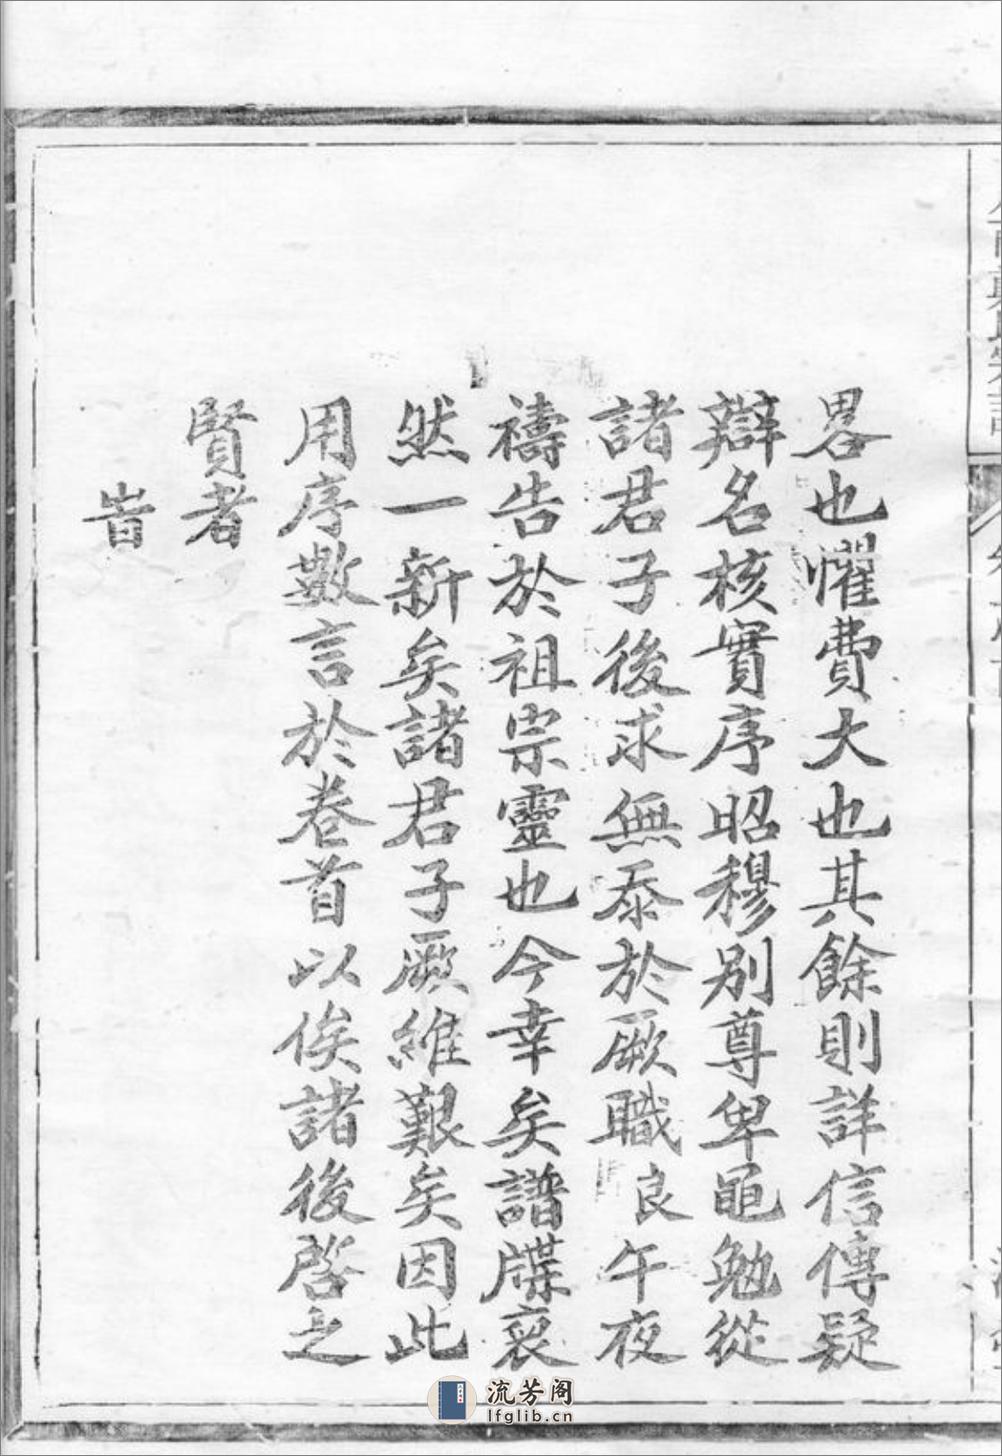 畧也懼費大也其餘則詳信傳疑
辯名核實序昭穆別尊卑黽勉從
諸君子後求無忝於厥職良午夜
禱告於祖宗靈也今幸矣譜牒裒
然一新矣諸君子厥維艱矣因此
用序數言於卷首以俟諸後啓之
賢者
旹
流芳阁
lfglib.cn